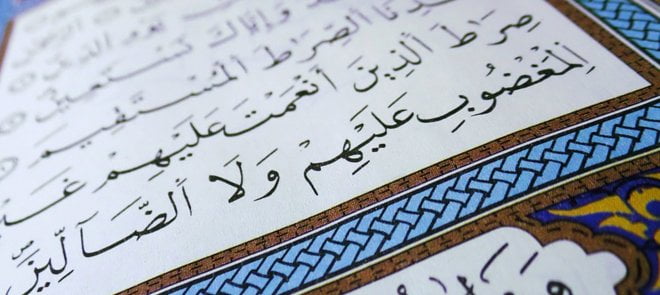 وَإِيَّاكَ نَسْتَعِينُ
ٱلصِّرَاطَ ٱلْمُسْتَقِيمَ
صِرَاطَ ٱلَّذِينَ أَنْعَمْتَ عَلَيْهِمْ
ٱلْمَغْضُوبِ عَلَيْهِمْ وَلَا ٱلضَّآلِّينَ